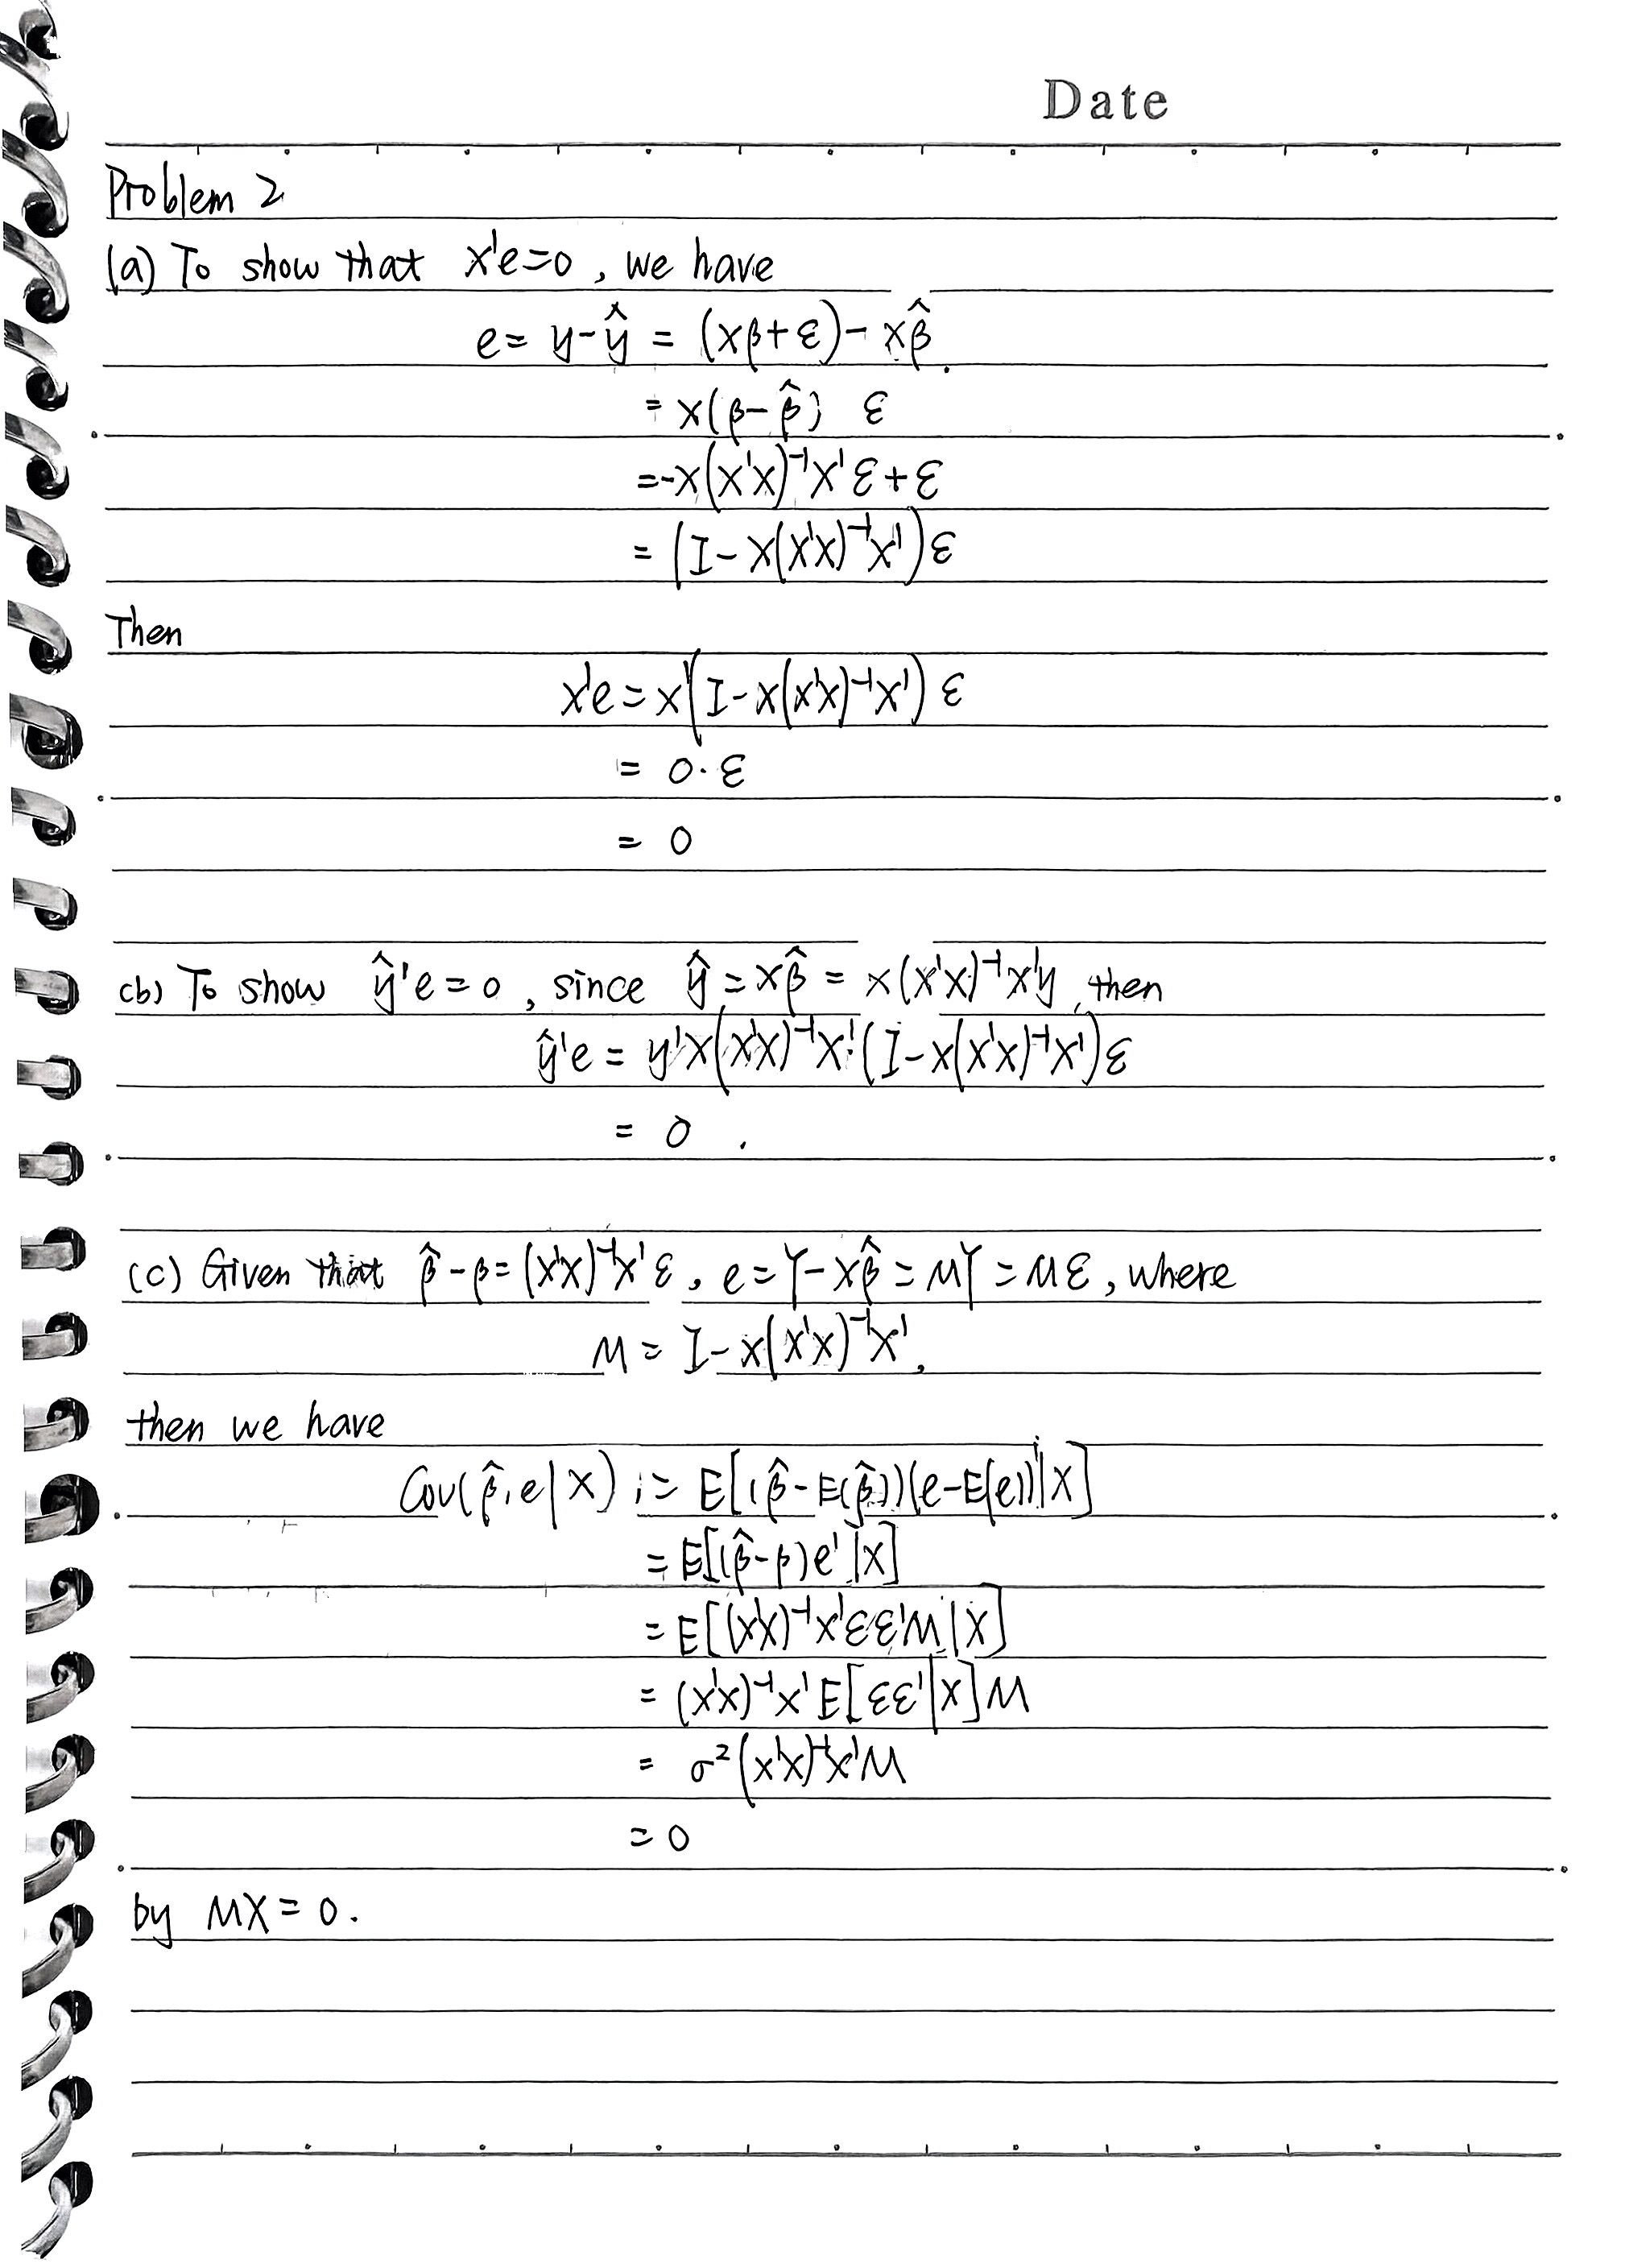 Date
Problem 2
(a) To show that X'e=0, we have
e = y-ŷ = (Xβ+ε)-Xβ̂
= X(β-β̂) ε
=-X(X'X)⁻¹X'ε+ε
= (I-X(X'X)⁻¹X')ε
Then
X'e = X'(I-X(X'X)⁻¹X')ε
= 0·ε
= 0
(b) To show ŷ'e=0, since ŷ = Xβ̂ = X(X'X)⁻¹X'y, then
ŷ'e = y'X(X'X)⁻¹X'(I-X(X'X)⁻¹X')ε
= 0.
(c) Given that β̂-β=(X'X)⁻¹X'ε, e=Y-Xβ̂=MY=Mε, where
M = I-X(X'X)⁻¹X',
then we have
Cov(β̂,e|X) := E[(β̂-E(β̂))(e-E(e))'|X]
= E[(β̂-β)e'|X]
= E[(X'X)⁻¹X'εε'M|X]
= (X'X)⁻¹X'E[εε'|X]M
= σ²(X'X)⁻¹X'M
= 0
by MX=0.